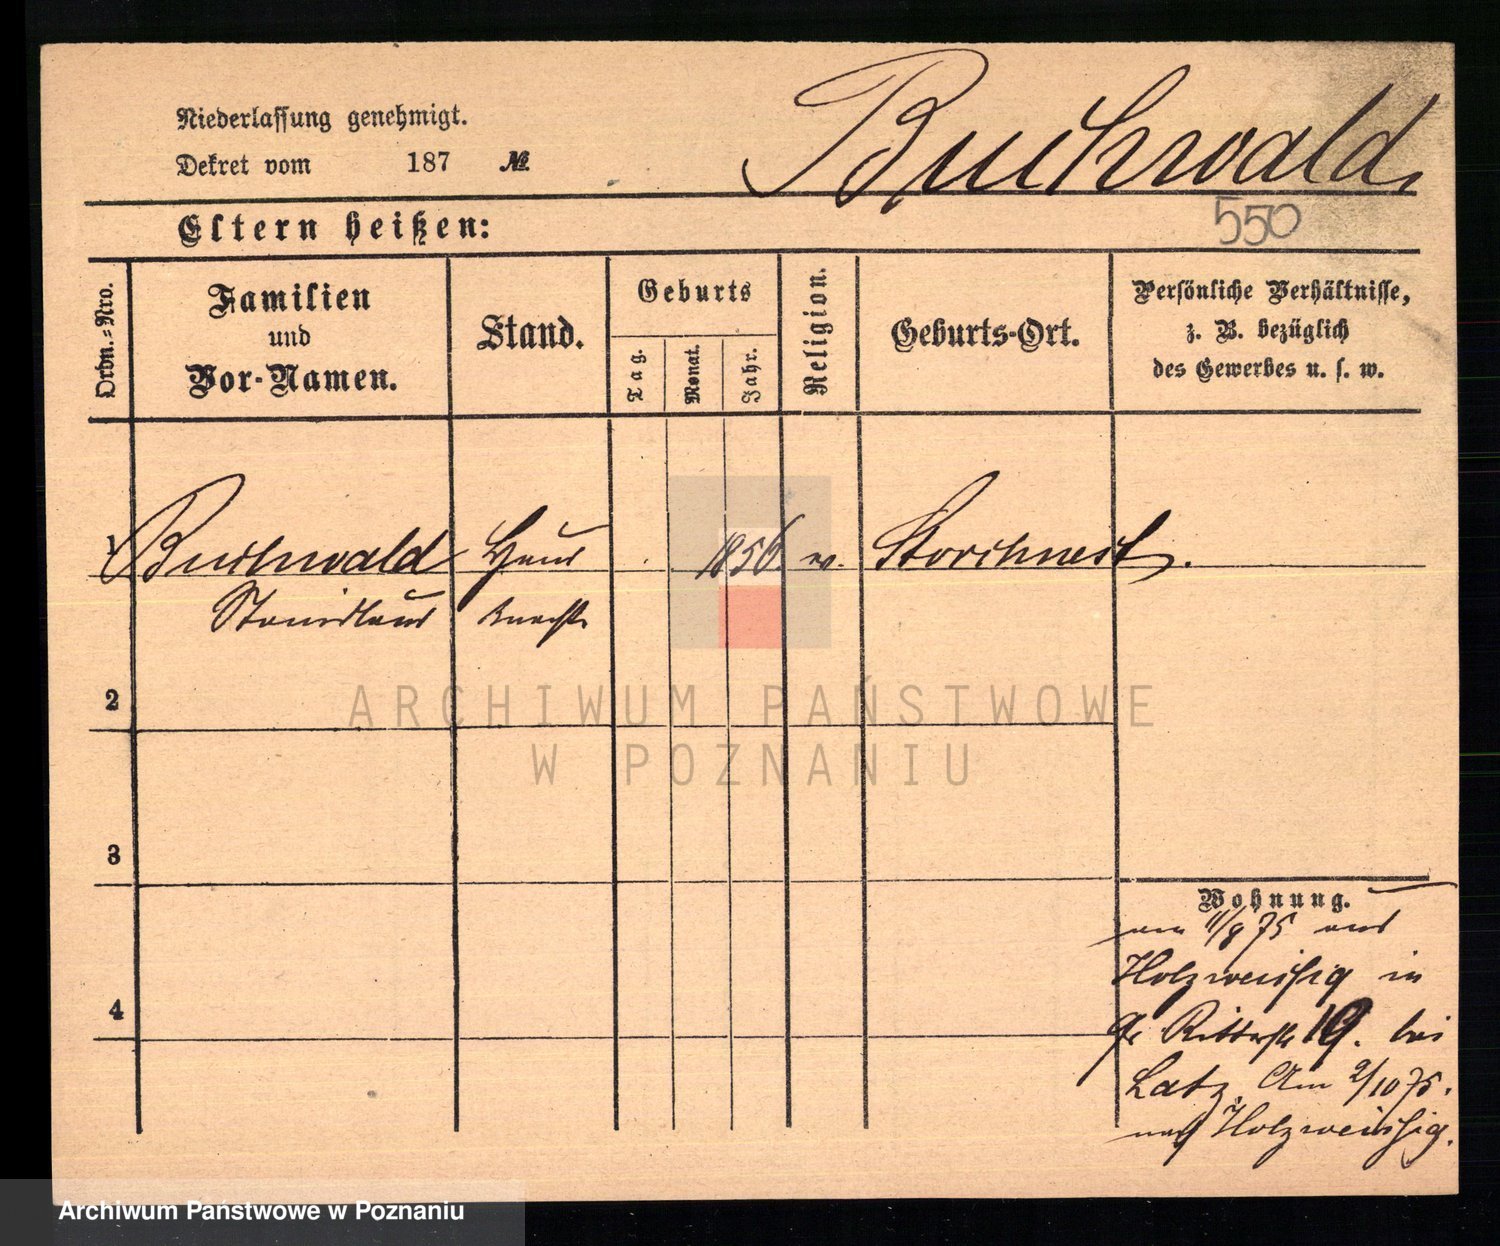 Niederlassung genehmigt.
Dekret vom 187 №
Buchwald.
550
Eltern heißen:
Ordn.-Nro.
Familien
und
Vor-Namen.
Stand.
Geburts
Tag.
Monat.
Jahr.
Religion.
Geburts-Ort.
Persönliche Verhältnisse,
z. B. bezüglich
des Gewerbes u. s. w.
1 Buchwald Haus 1856. Storchnest.
Stanislaus knecht
2
3
4
Wohnung.
am 11/9 75 aus
Holzweissig in
gr Ritterstr 19. bei
Latz. Am 2/10 75.
nach Holzweissig.
ARCHIWUM PAŃSTWOWE
W POZNANIU
Archiwum Państwowe w Poznaniu